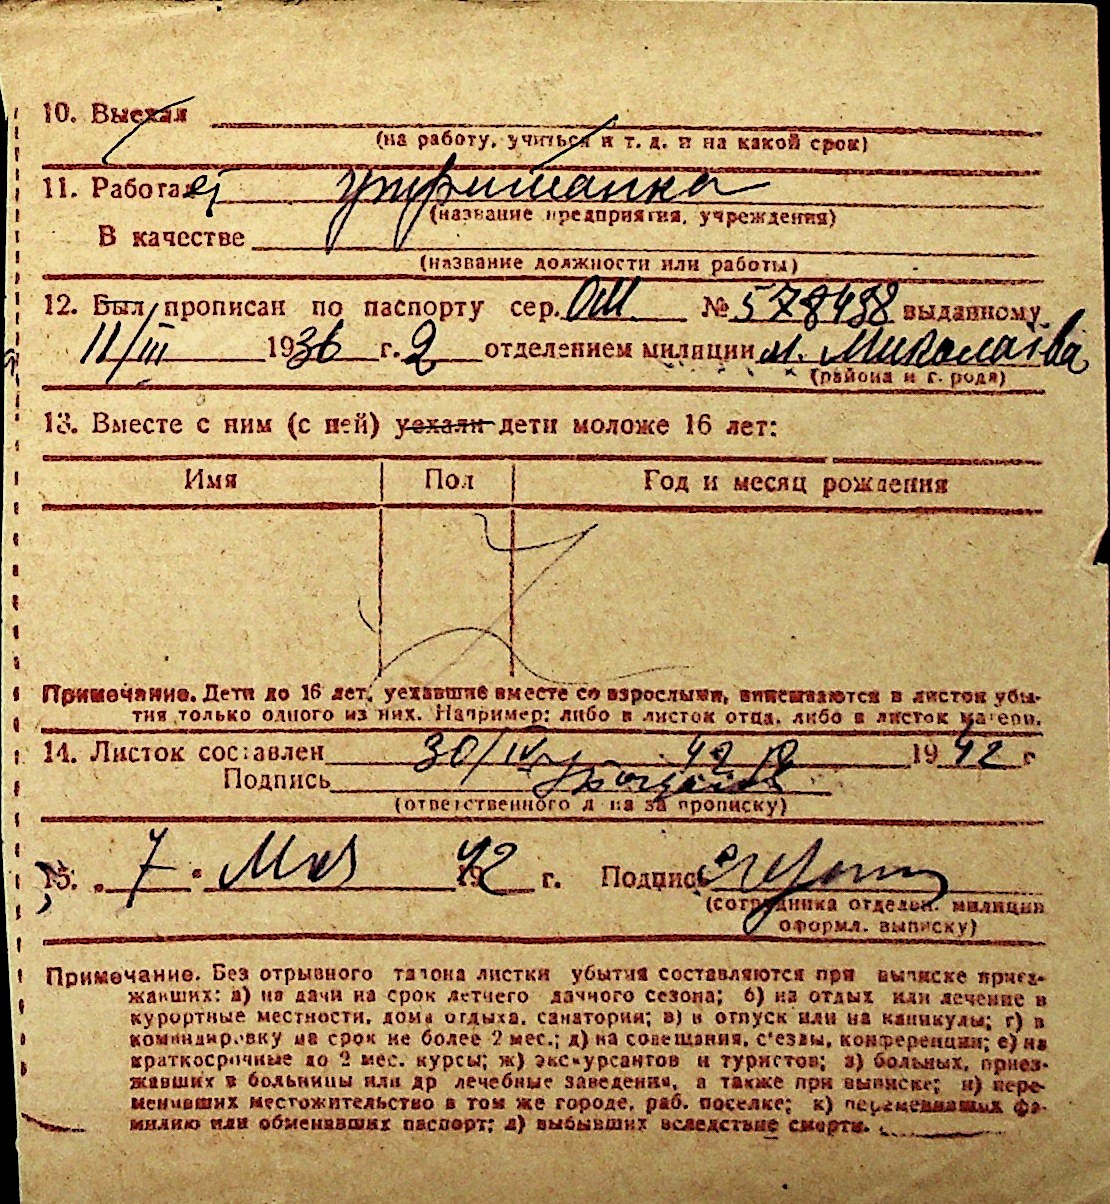 10. Выехал
(на работу, учиться и т. д. и на какой срок)
11. Работает
(название предприятия, учреждения)
В качестве
(название должности или работы)
12. Был прописан по паспорту сер. ОМ № 578438 выданному
11/III 1936 г. 2 отделением милиции м. Миколаєва
(района и г. рода)
13. Вместе с ним (с ней) уехали дети моложе 16 лет:
Имя Пол Год и месяц рождения
Примечание. Дети до 16 лет, уехавшие вместе со взрослыми, вписываются в листок убы-
тия только одного из них. Например: либо в листок отца, либо в листок матери.
14. Листок составлен 30/IV 42 1942 г
Подпись
(ответственного л на за прописку)
15. „ 7 " Мая 1942 г. Подпись
(сотрудника отделен. милиции
оформл. выписку)
Примечание. Без отрывного талона листки убытия составляются при выписке приез-
жавших: а) на дачи на срок летнего дачного сезона; б) на отдых или лечение в
курортные местности, дома отдыха, санатории; в) в отпуск или на каникулы; г) в
командировку на срок не более 2 мес.; д) на совещания, с'езды, конференции; е) на
краткосрочные до 2 мес. курсы; ж) экскурсантов и туристов; з) больных, приез-
жавших в больницы или др лечебные заведения, а также при выписке; и) пере-
менивших местожительство в том же городе, раб. поселке; к) переменивших фа-
милию или обменявших паспорт; л) выбывших вследствие смерти.